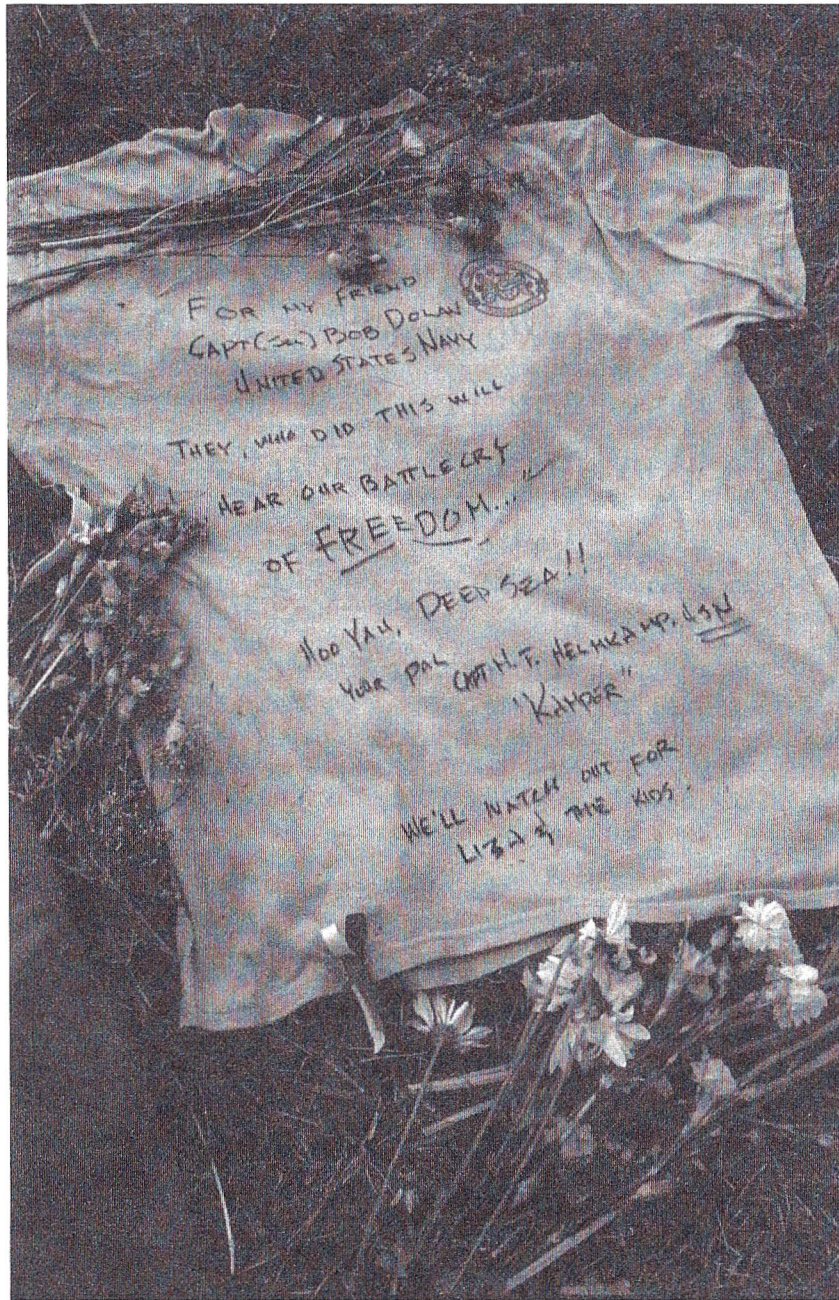 FOR MY FRIEND
CAPT (Sel) BOB DOLAN
UNITED STATES NAVY
THEY, WHO DID THIS WILL
HEAR OUR BATTLECRY
OF FREEDOM..."
HOO YAH, DEEP SEA!!
YOUR PAL CAPT H.T. HELMKAMP, USN
"KAMPER"
WE'LL WATCH OUT FOR
LISA & THE KIDS.